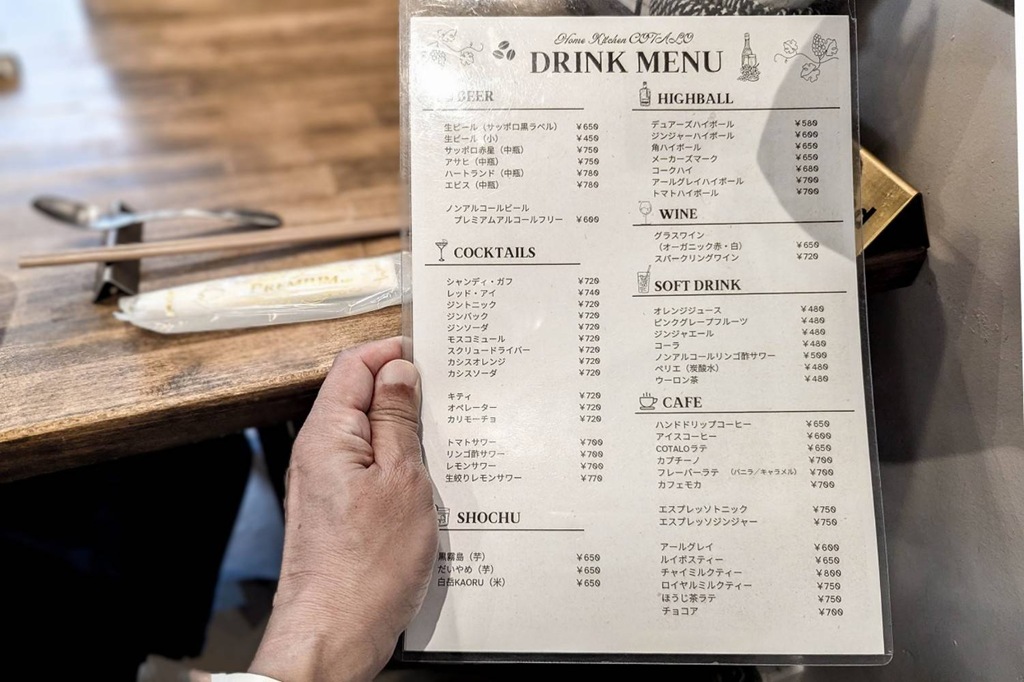 Home Kitchen COTALO
DRINK MENU
BEER
生ビール（サッポロ黒ラベル） ￥650
生ビール（小） ￥450
サッポロ赤星（中瓶） ￥750
アサヒ（中瓶） ￥750
ハートランド（中瓶） ￥780
エビス（中瓶） ￥780
ノンアルコールビール
プレミアムアルコールフリー ￥600
COCKTAILS
シャンディ・ガフ ￥720
レッド・アイ ￥740
ジントニック ￥720
ジンバック ￥720
ジンソーダ ￥720
モスコミュール ￥720
スクリュードライバー ￥720
カシスオレンジ ￥720
カシスソーダ ￥720
キティ ￥720
オペレーター ￥720
カリモーチョ ￥720
トマトサワー ￥700
リンゴ酢サワー ￥700
レモンサワー ￥700
生絞りレモンサワー ￥770
SHOCHU
黒霧島（芋） ￥650
だいやめ（芋） ￥650
白岳KAORU（米） ￥650
HIGHBALL
デュアーズハイボール ￥580
ジンジャーハイボール ￥600
角ハイボール ￥650
メーカーズマーク ￥650
コークハイ ￥680
アールグレイハイボール ￥700
トマトハイボール ￥700
WINE
グラスワイン
（オーガニック赤・白） ￥650
スパークリングワイン ￥720
SOFT DRINK
オレンジジュース ￥480
ピンクグレープフルーツ ￥480
ジンジャエール ￥480
コーラ ￥480
ノンアルコールリンゴ酢サワー ￥500
ペリエ（炭酸水） ￥480
ウーロン茶 ￥480
CAFE
ハンドドリップコーヒー ￥650
アイスコーヒー ￥600
COTALOラテ ￥650
カプチーノ ￥700
フレーバーラテ （バニラ／キャラメル） ￥700
カフェモカ ￥700
エスプレッソトニック ￥750
エスプレッソジンジャー ￥750
アールグレイ ￥600
ルイボスティー ￥650
チャイミルクティー ￥800
ロイヤルミルクティー ￥750
ほうじ茶ラテ ￥750
チョコア ￥700
PREMIUM